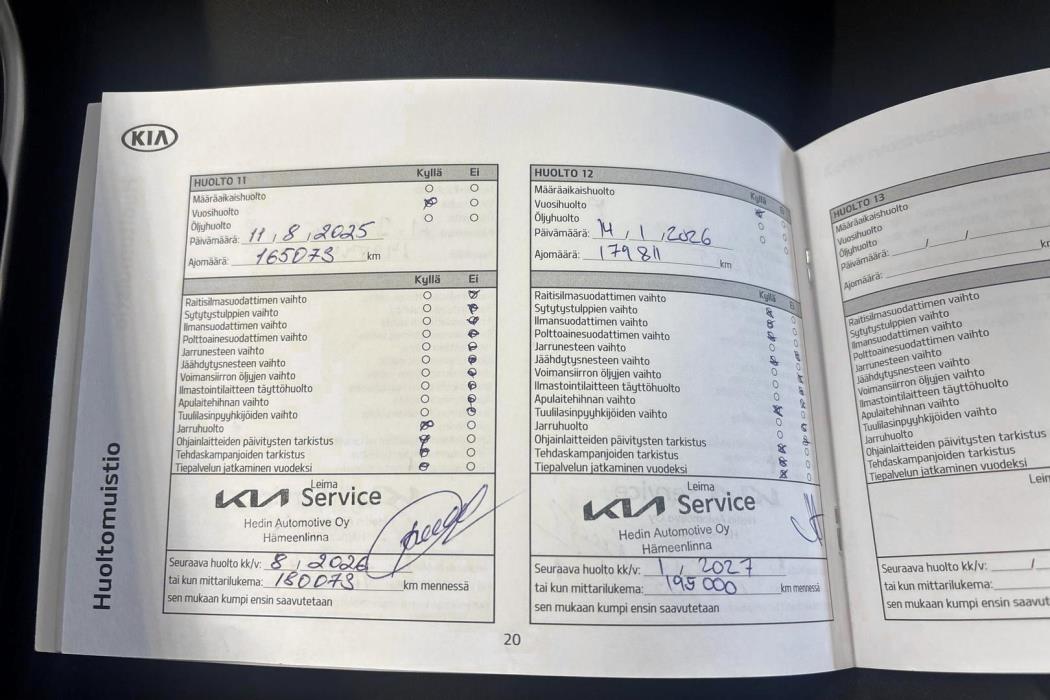 KIA
Huoltomuistio
HUOLTO 11 Kyllä Ei
Määräaikaishuolto
Vuosihuolto
Öljyhuolto
Päivämäärä: 11, 8, 2025
Ajomäärä: 165073 km
Kyllä Ei
Raitisilmasuodattimen vaihto
Sytytystulppien vaihto
Ilmansuodattimen vaihto
Polttoainesuodattimen vaihto
Jarrunesteen vaihto
Jäähdytysnesteen vaihto
Voimansiirron öljyjen vaihto
Ilmastointilaitteen täyttöhuolto
Apulaitehihnan vaihto
Tuulilasinpyyhkijöiden vaihto
Jarruhuolto
Ohjainlaitteiden päivitysten tarkistus
Tehdaskampanjoiden tarkistus
Tiepalvelun jatkaminen vuodeksi
Leima
KIA Service
Hedin Automotive Oy
Hämeenlinna
Seuraava huolto kk/v: 8, 2026
tai kun mittarilukema: 180073 km mennessä
sen mukaan kumpi ensin saavutetaan
HUOLTO 12 Kyllä Ei
Määräaikaishuolto
Vuosihuolto
Öljyhuolto
Päivämäärä: 14, 1, 2026
Ajomäärä: 179811 km
Kyllä Ei
Raitisilmasuodattimen vaihto
Sytytystulppien vaihto
Ilmansuodattimen vaihto
Polttoainesuodattimen vaihto
Jarrunesteen vaihto
Jäähdytysnesteen vaihto
Voimansiirron öljyjen vaihto
Ilmastointilaitteen täyttöhuolto
Apulaitehihnan vaihto
Tuulilasinpyyhkijöiden vaihto
Jarruhuolto
Ohjainlaitteiden päivitysten tarkistus
Tehdaskampanjoiden tarkistus
Tiepalvelun jatkaminen vuodeksi
Leima
KIA Service
Hedin Automotive Oy
Hämeenlinna
Seuraava huolto kk/v: 1, 2027
tai kun mittarilukema: 195000 km mennessä
sen mukaan kumpi ensin saavutetaan
20
HUOLTO 13
Määräaikaishuolto
Vuosihuolto
Öljyhuolto
Päivämäärä: / /
Ajomäärä:
Raitisilmasuodattimen vaihto
Sytytystulppien vaihto
Ilmansuodattimen vaihto
Polttoainesuodattimen vaihto
Jarrunesteen vaihto
Jäähdytysnesteen vaihto
Voimansiirron öljyjen vaihto
Ilmastointilaitteen täyttöhuolto
Apulaitehihnan vaihto
Tuulilasinpyyhkijöiden vaihto
Jarruhuolto
Ohjainlaitteiden päivitysten tarkistus
Tehdaskampanjoiden tarkistus
Tiepalvelun jatkaminen vuodeksi
Seuraava huolto kk/v: /
tai kun mittarilukema:
sen mukaan kumpi ensin